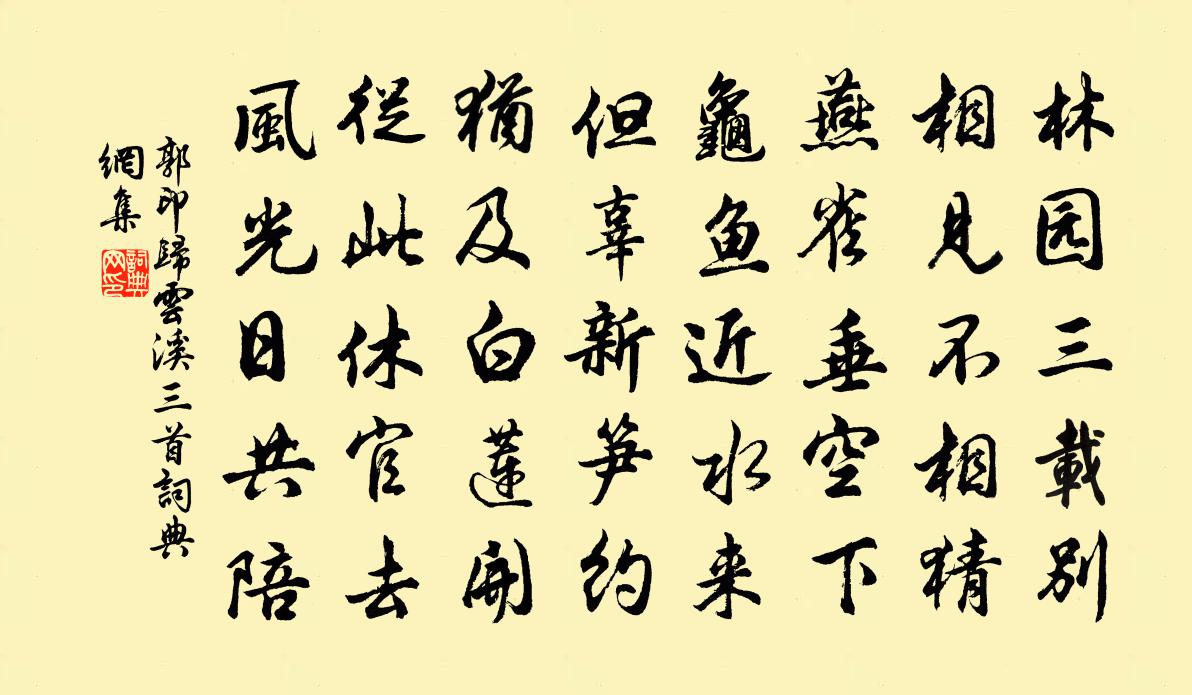 林园三載别
相見不相猜
燕雀垂空下
龜鱼近水来
但辜新笋约
猶及白蓮開
從此休官去
風光日共陪
郭印歸雲溪三首詞典
網集
詞典网印